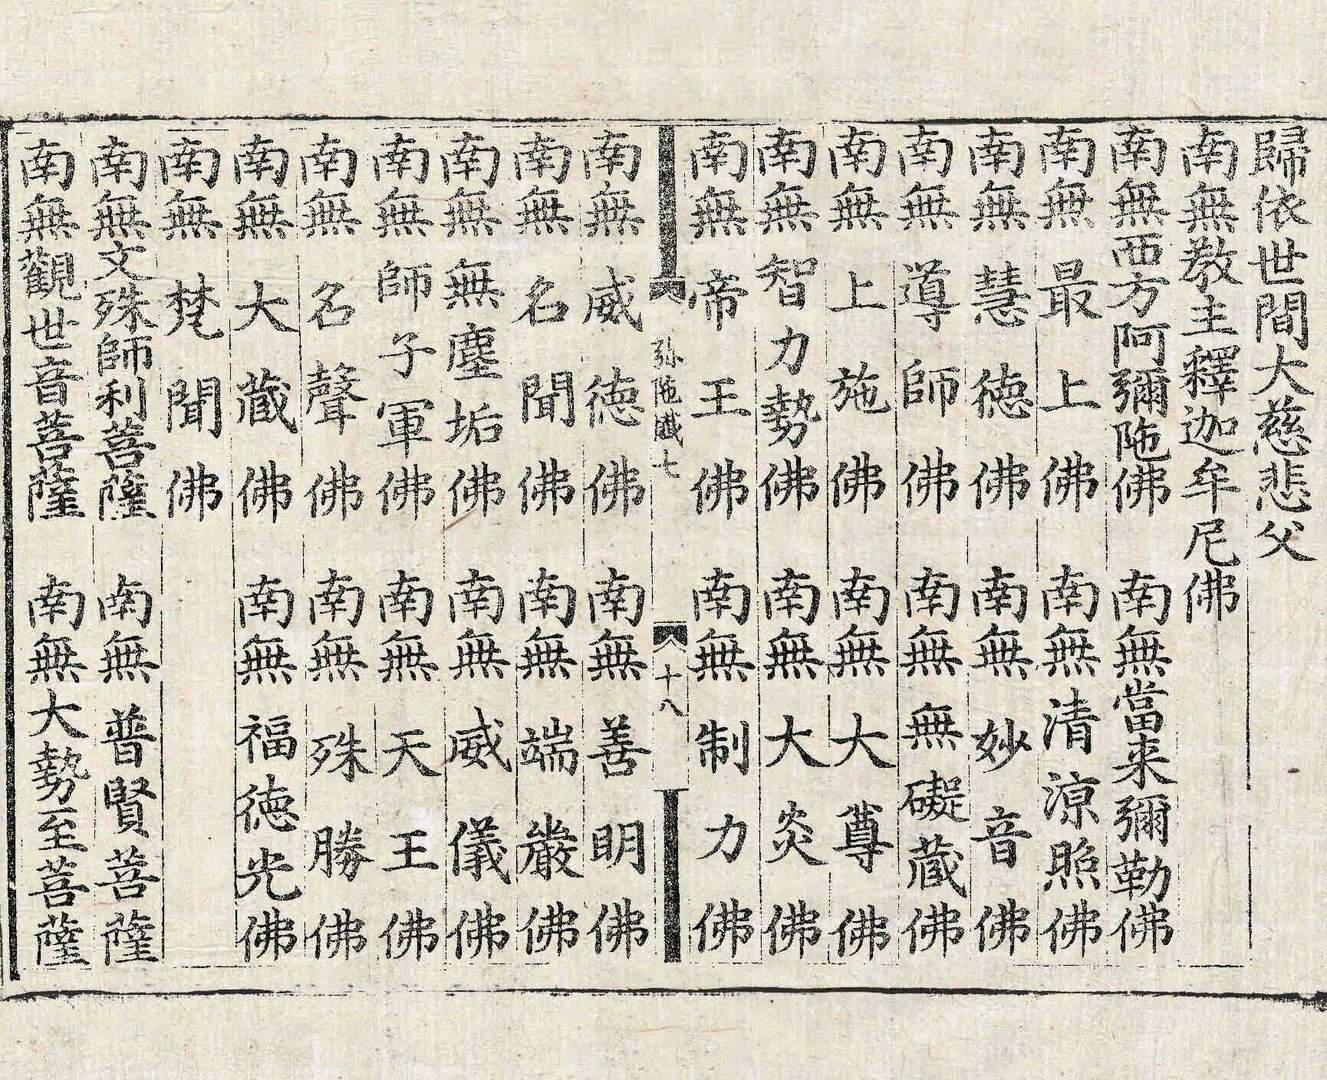 歸依世間大慈悲父
南無教主釋迦牟尼佛
南無西方阿彌陁佛 南無當来彌勒佛
南無最上佛 南無清涼照佛
南無慧德佛 南無妙音佛
南無導師佛 南無無礙藏佛
南無上施佛 南無大尊佛
南無智力勢佛 南無大炎佛
南無帝王佛 南無制力佛
弥陁懺七 十八
南無威德佛 南無善明佛
南無名聞佛 南無端嚴佛
南無無塵垢佛 南無威儀佛
南無師子軍佛 南無天王佛
南無名聲佛 南無殊勝佛
南無大藏佛 南無福德光佛
南無梵聞佛
南無文殊師利菩薩 南無普賢菩薩
南無觀世音菩薩 南無大勢至菩薩